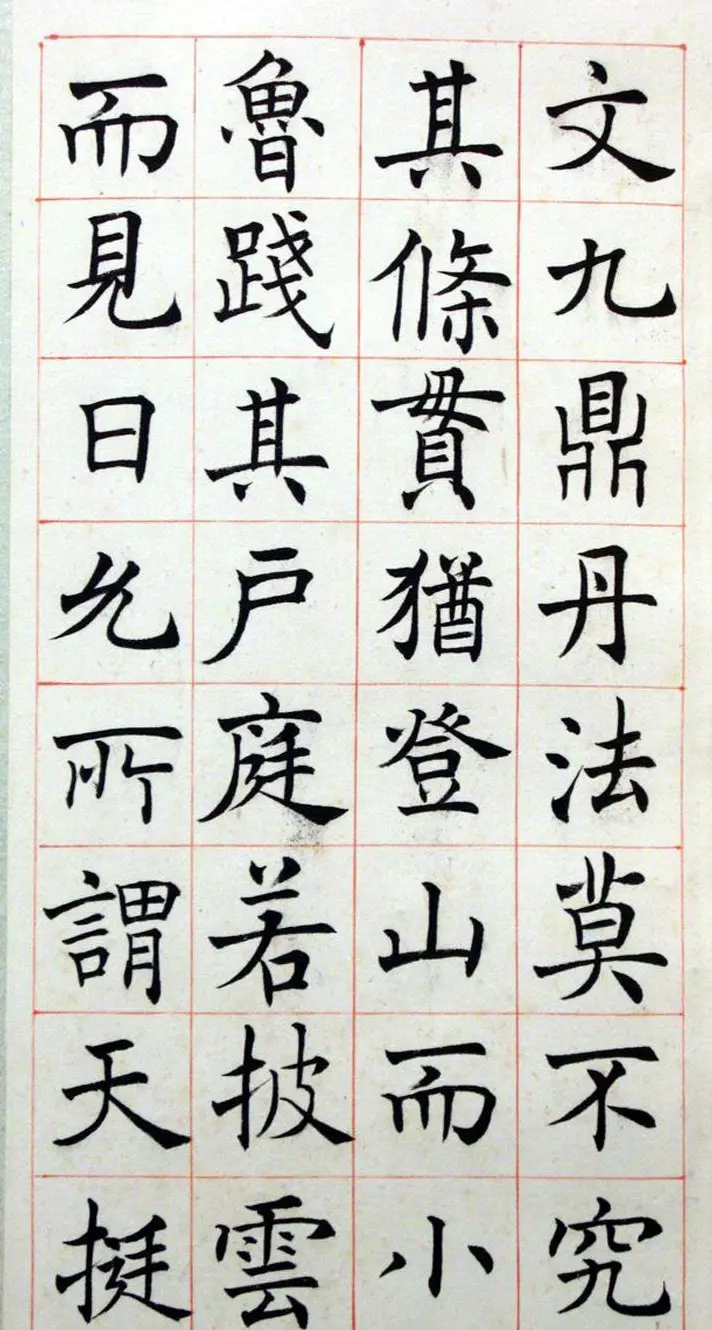 文九鼎丹法莫不究
其條貫猶登山而小
魯踐其户庭若披雲
而見日允所謂天挺